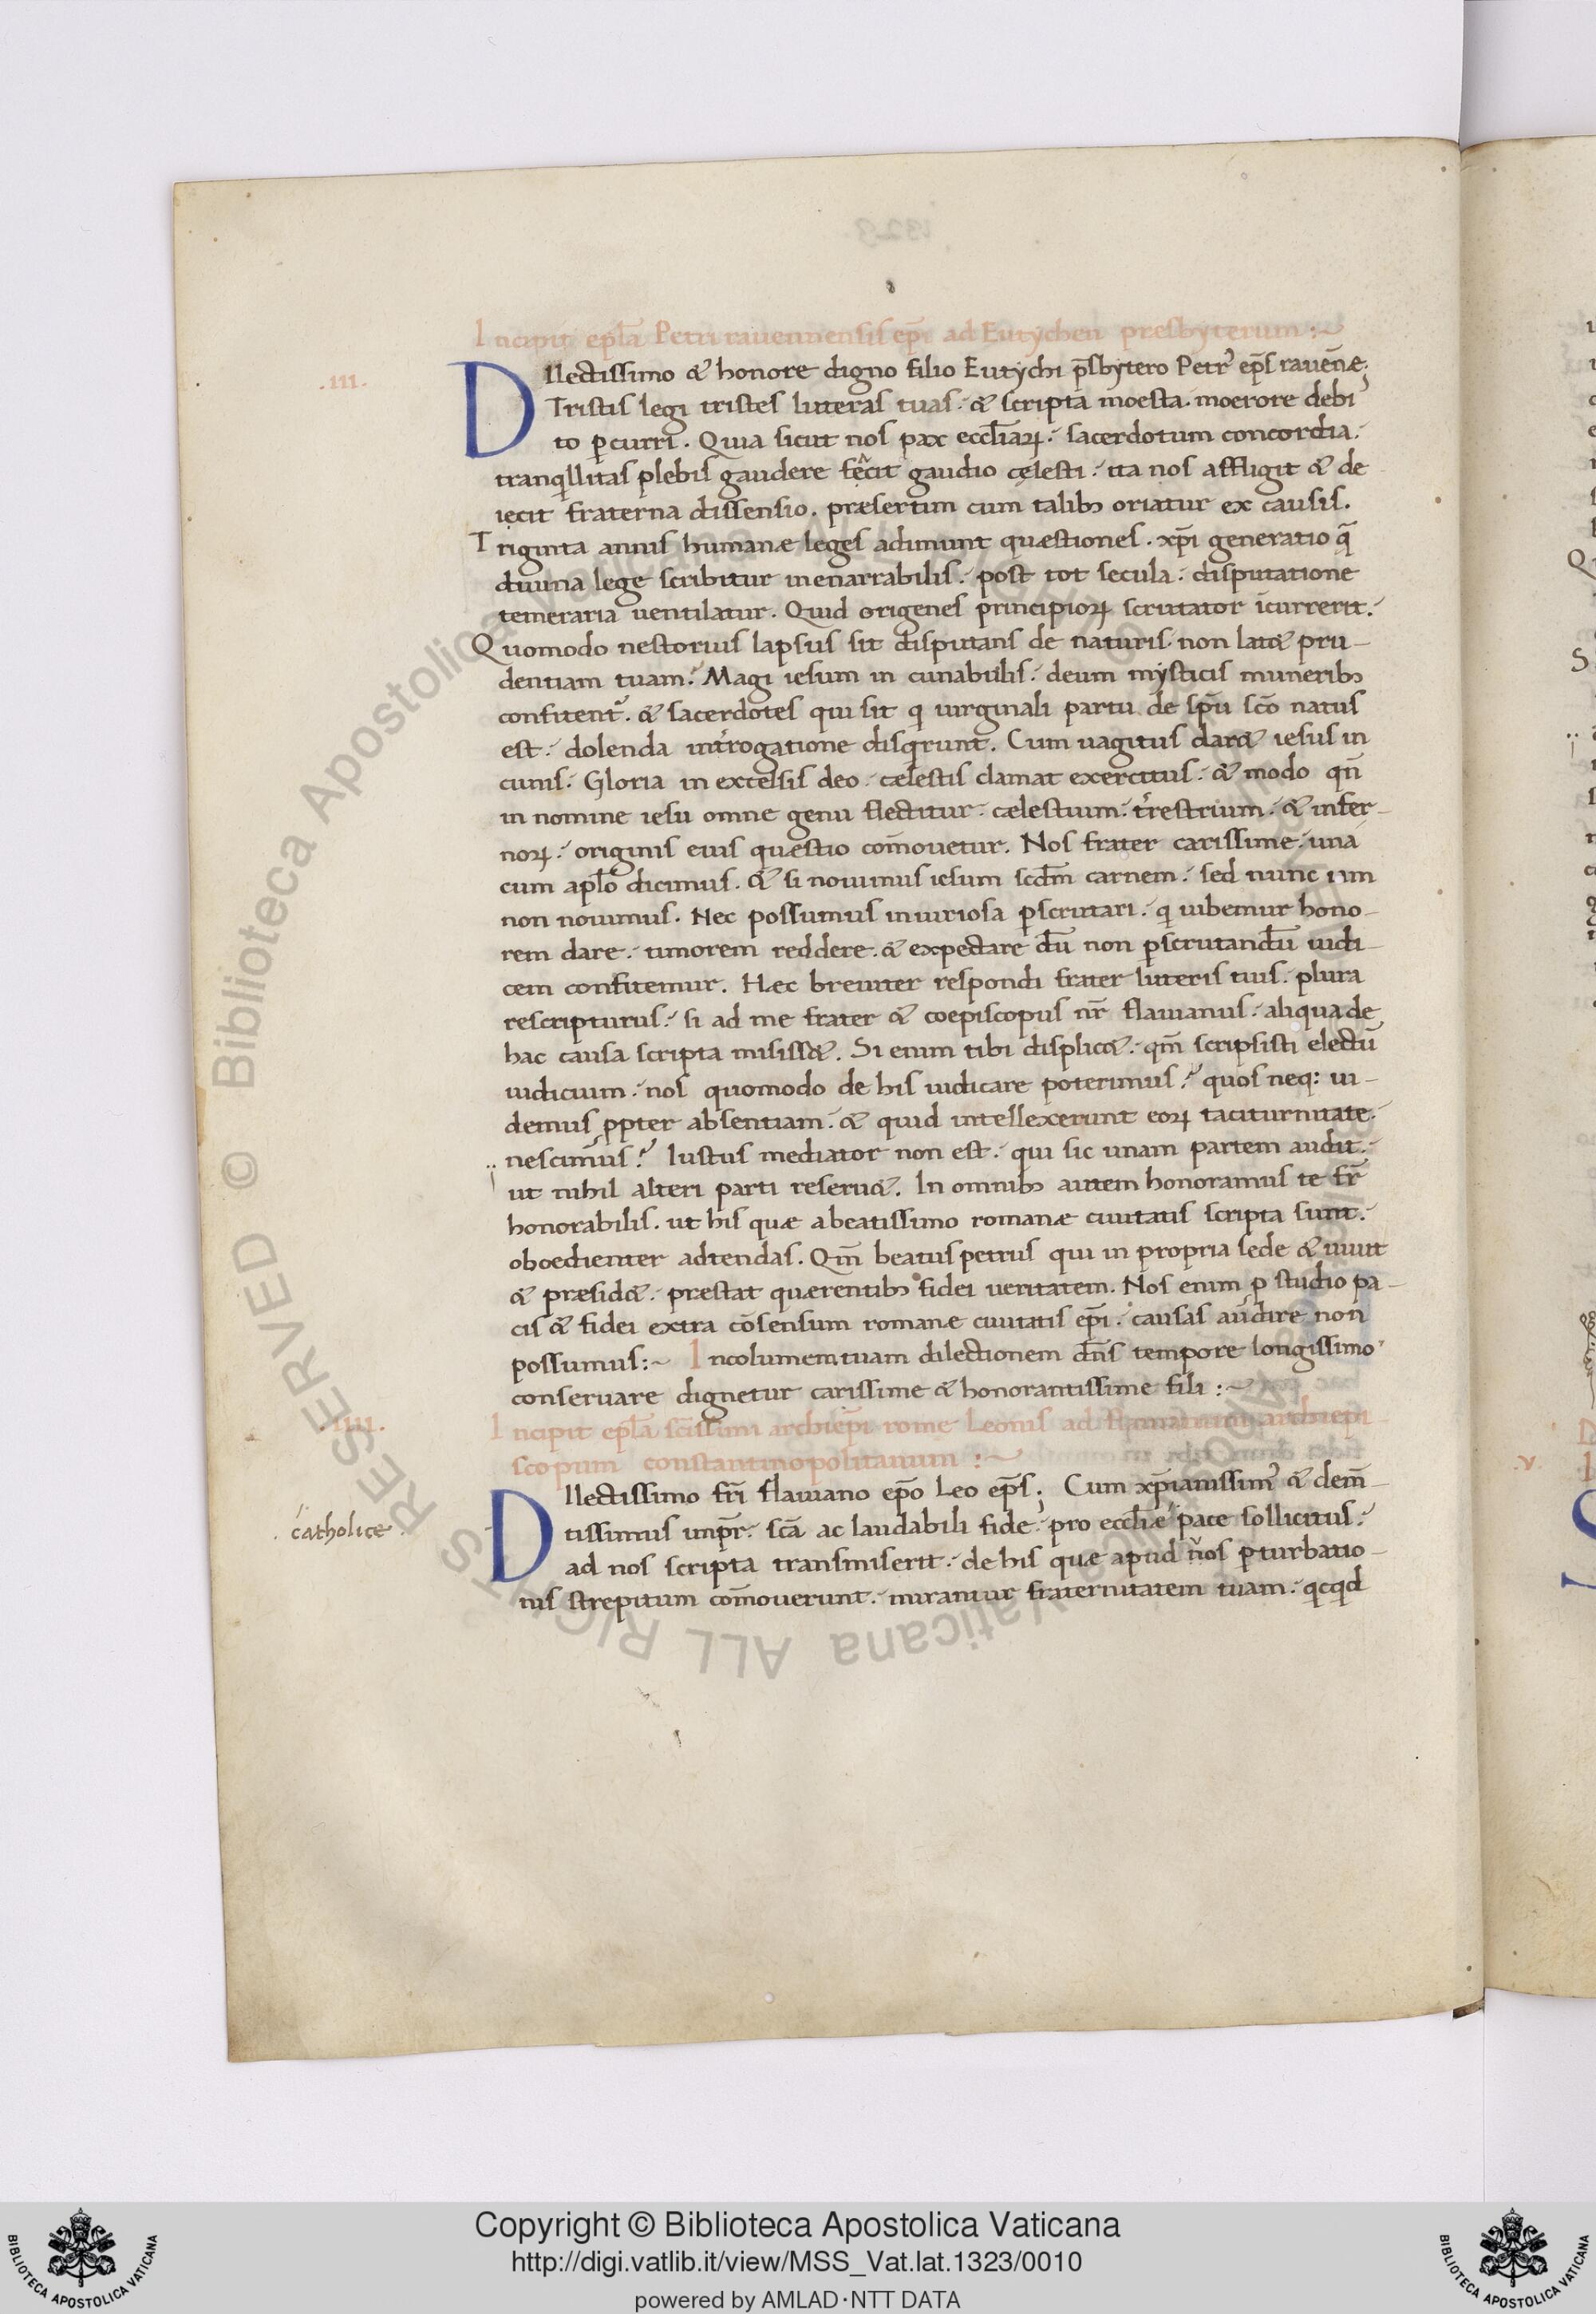 Incipit epl̄a Petri rauennensis ep̄i ad Eutychen presbyterum :~
.III.
DIlectissimo & honore digno filio Eutychi p̄sbytero Petr᾽ ep̄s rauen̄ne;
Tristis legi tristes litteras tuas. & scripta moesta. moerore debi
to ꝑcurri. Quia sicut nos pax eccl̄iaꝝ. sacerdotum concordia.
tranqillitas plebis gaudere fecit gaudio cęlesti. ita nos affligit & de
iecit fraterna dissensio. præsertim cum talibꝫ oriatur ex causis.
Triginta annis humanæ leges adimunt quæstiones. xp̄i generatio q̄
diuina lege scribitur inenarrabilis. post tot secula. disputatione
temeraria uentilatur. Quid origenes principioꝝ scrutator īcurrerit.
Quomodo nestorius lapsus sit disputans de naturis. non lat& pru-
dentiam tuam. Magi iesum in cunabulis. deum mysticis muneribꝫ
confitent᾽. & sacerdotes qui sit qi uirginali partu de sp̄u sc̄o natus
est. dolenda int᾽rogatione disqirunt. Cum uagitus dar& iesus in
cunis. Gloria in excelsis deo. cælestis clamat exercitus. & modo qn̄
in nomine iesu omne genu flectitur. cælestium. t᾽restrium. & infer-
noꝝ. originis eius quæstio com̄ouetur. Nos frater carissime. una
cum apl̄o dicimus. & si nouimus iesum scd̄m carnem. sed nunc iam
non nouimus. Nec possumus iniuriosa ꝑscrutari. qi iubemur hono-
rem dare. timorem reddere. & expectare dū non ꝑscrutandū iudi-
cem confitemur. Hæc breuiter respondi frater litteris tuis. plura
rescripturus. si ad me frater & coepiscopus nr̄ flauianus. aliqua de
hac causa scripta misiss&. Si enim tibi displic&. qm̄ scripsisti electū
iudicium. nos quomodo de his iudicare poterimus? quos neq: ui-
demus ꝓpter absentiam. & quid intellexerunt eoꝝ taciturnitate.
nescimus? Iustus mediator non est. qui sic unam partem audit.
ut nihil alteri parti reseru&. In omnibꝫ autem honoramus te fr̄
honorabilis. ut his quæ a beatissimo romanæ ciuitatis scripta sunt.
oboedienter adtendas. Qm̄ beatus petrus qui in propria sede & uiuit
& præsid&. præstat quærentibꝫ fidei ueritatem. Nos enim ꝓ studio pa-
cis & fidei extra cōsensum romanæ ciuitatis ep̄i. causas audire non
possumus :~ Incolumem tuam dilectionem dn̄s tempore longissimo
conseruare dignetur carissime & honorantissime fili :~
.IIII.
Incipit epl̄a sc̄issimi archiep̄i rome Leonis ad flauianum archiepi
scopum constantinopolitanum :~
DIlectissimo fr̄i flauiano ep̄o Leo ep̄s; Cum xp̄ianissim᾽ & clem̄-
catholice
tissimus imp̄r. sc̄a ac laudabili fide. pro eccl̄iæ pace sollicitus.
ad nos scripta transmiserit. de his quæ apud uos ꝑturbatio-
nis strepitum com̄ouerunt. miramur fraternitatem tuam. qicqid
Copyright © Biblioteca Apostolica Vaticana
http://digi.vatlib.it/view/MSS_Vat.lat.1323/0010
powered by AMLAD·NTT DATA